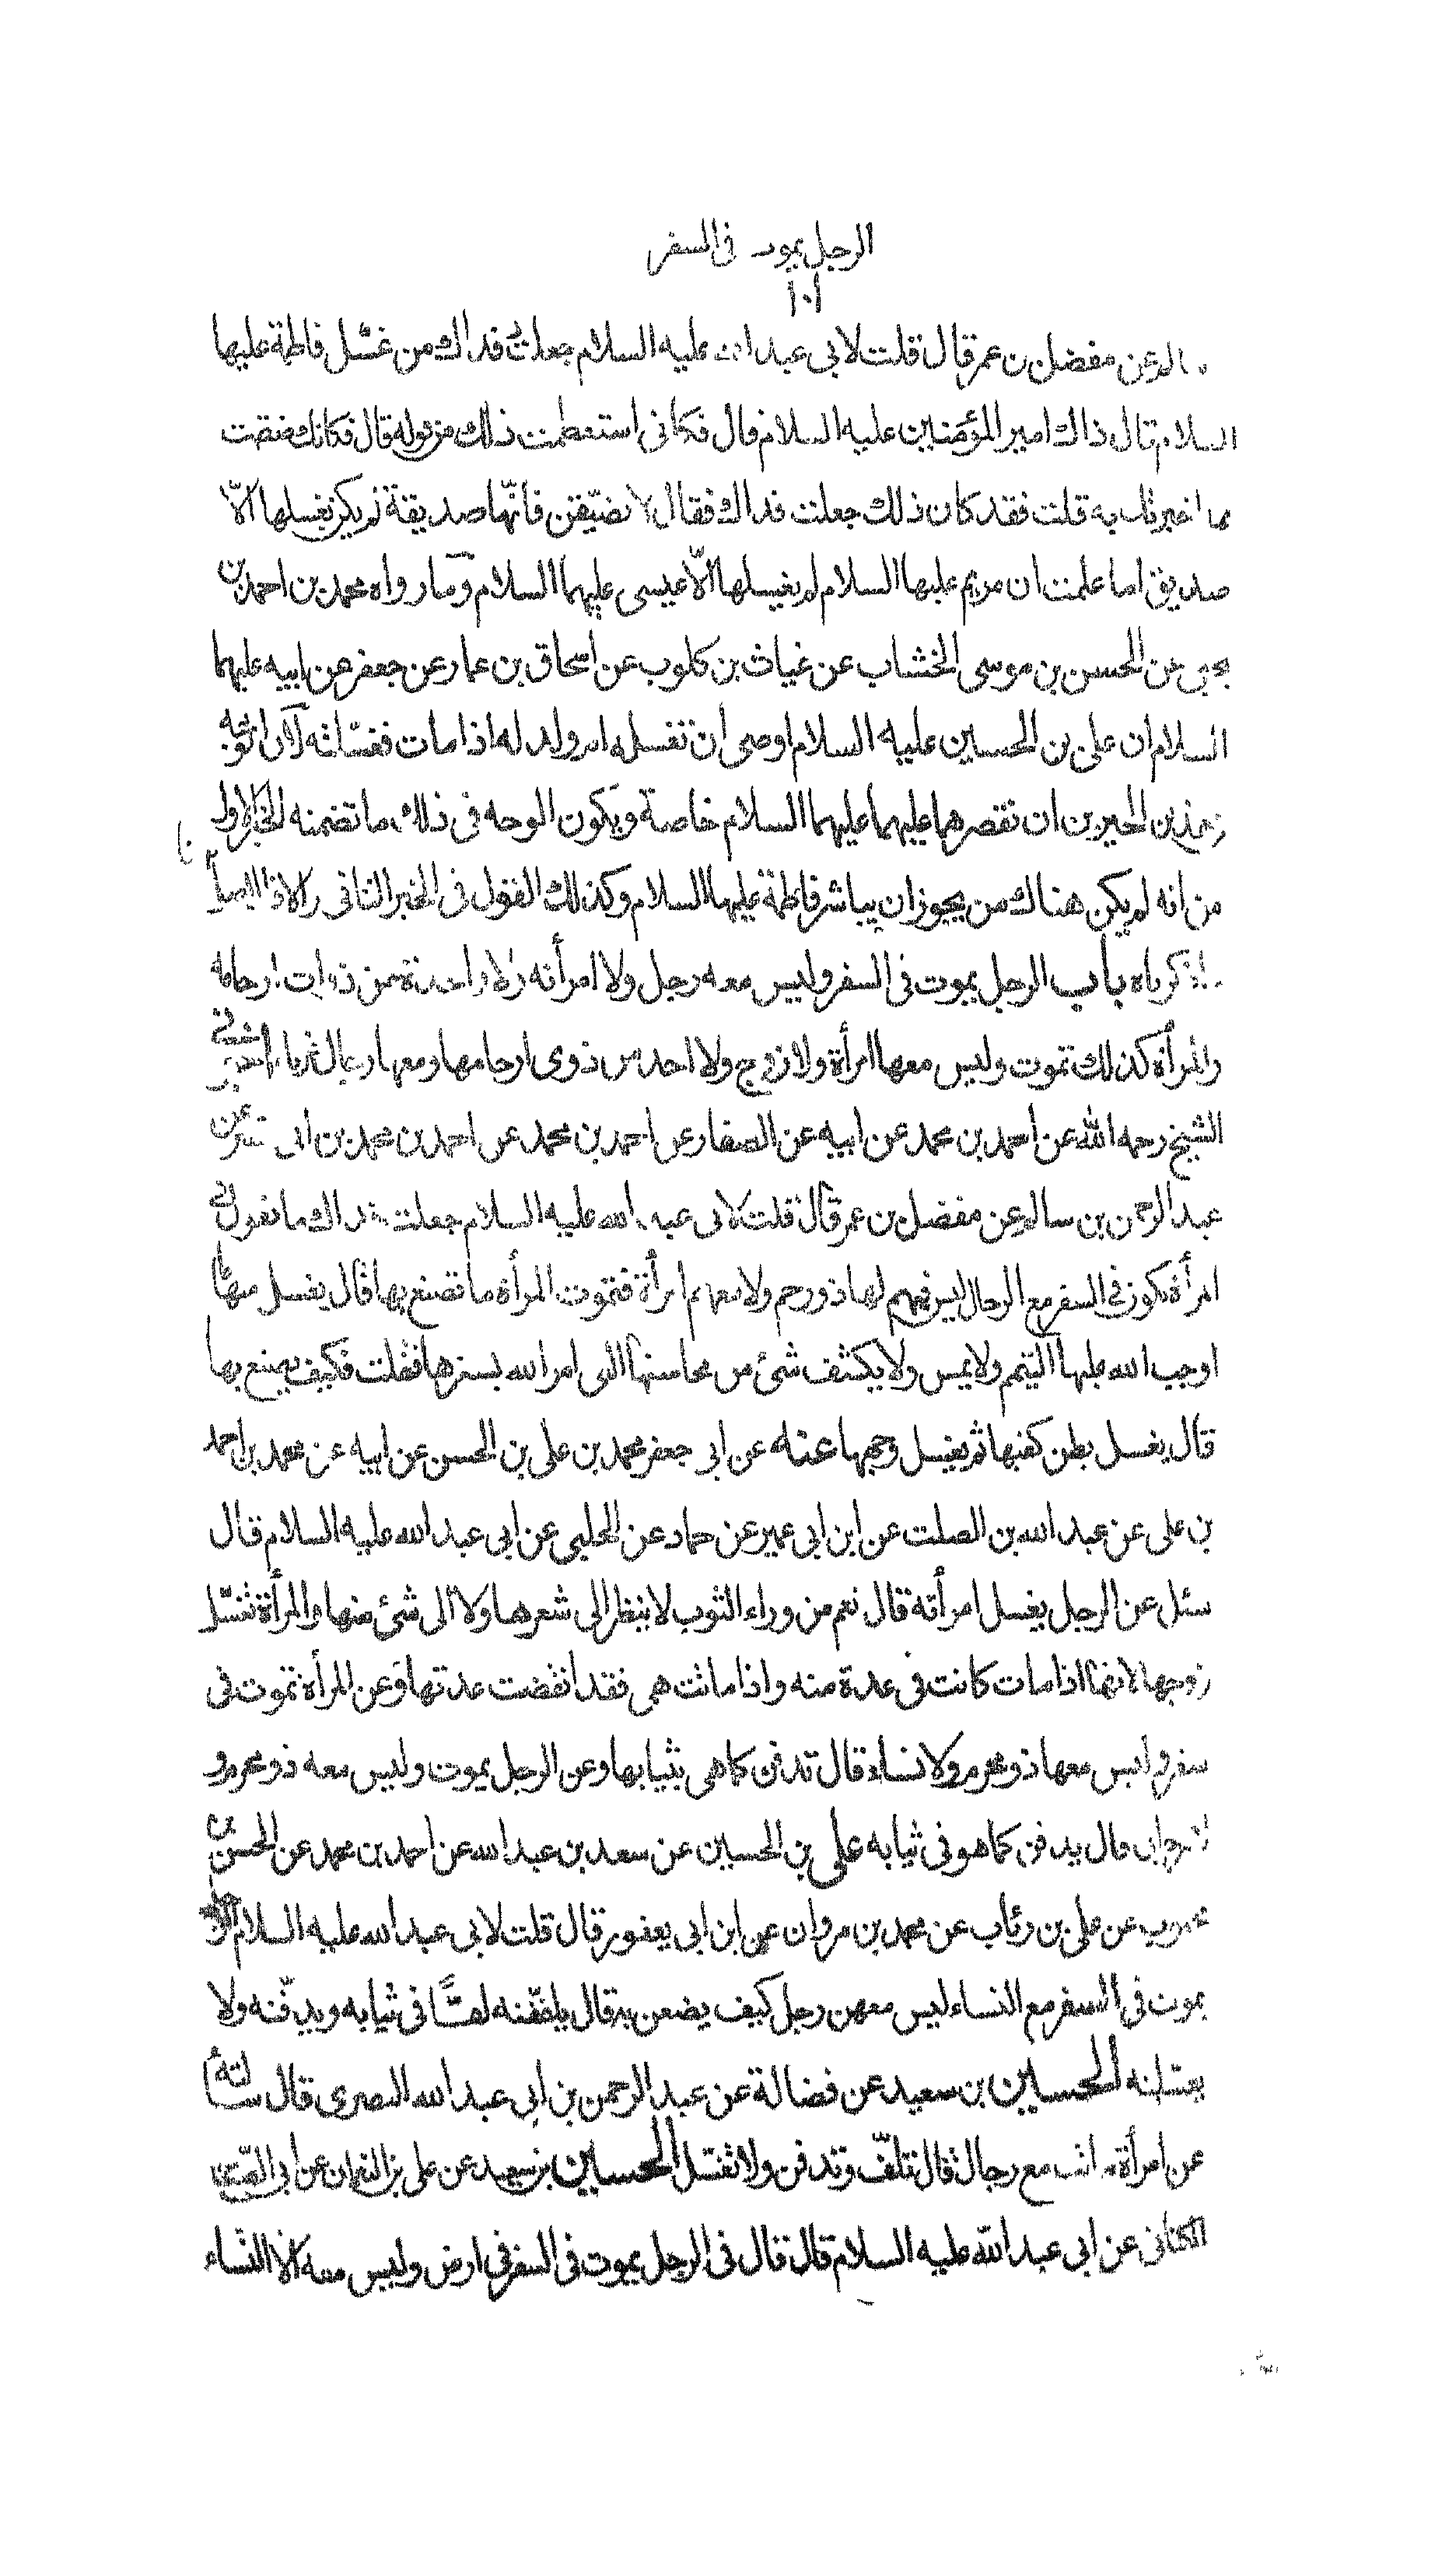 الرجل يموت في السفر
١٠١
عن مفضل بن عمر قال قلت لابي عبد الله عليه السلام جعلت فداك من غسّل فاطمة عليها
السلام قال ذاك امير المؤمنين عليه السلام قال فكانى استعظمت ذلك من قوله قال فكانك ضقت
مما اخبرتك به قلت فقد كان ذلك جعلت فداك فقال لا تضيّقن فانّها صديقة لم يكن يغسلها الّا
صديق اما علمت ان مريم عليها السلام لم يغسلها الّا عيسى عليهما السلام وما رواه محمد بن احمد بن
يحيى عن الحسن بن موسى الخشاب عن غياث بن كلوب عن اسحاق بن عمار عن جعفر عن ابيه عليهما
السلام ان على بن الحسين عليه السلام اوصى ان تغسله ام ولد له اذا مات فغسّلته لان الوجه
هذين الخبرين ان نقصرهما عليهما عليهما السلام خاصة ويكون الوجه في ذلك ما تضمنه الخبر الاول
من انه لم يكن هناك من يجوز ان يباشر فاطمة عليها السلام وكذلك القول في الخبر الثاني
ذكرناه باب الرجل يموت في السفر وليس معه رجل ولا امرأته ولا واحدة من ذوات ارحامه
والمرأة كذلك تموت وليس معها امرأة ولا زوج ولا احد من ذوى ارحامها ومعها رجال غرباء اخبرني
الشيخ رحمه الله عن احمد بن محمد عن ابيه عن الصفار عن احمد بن محمد عن احمد بن محمد بن ابى نصر عن
عبد الرحمن بن سالم عن مفضل بن عمر قال قلت لابى عبد الله عليه السلام جعلت فداك ما تقول في
المرأة تكون في السفر مع الرجال ليس فيهم لها ذو رحم ولا معهم امرأة فتموت المرأة ما تصنع بها قال يغسل منها ما
اوجب الله عليها التيمم ولا يمس ولا يكشف شئ من محاسنها التى امر الله بسترها فقلت فكيف يصنع بها
قال يغسل بطن كفيها ثم يغسل وجهها عنه عن ابي جعفر محمد بن على بن الحسن عن ابيه عن محمد بن احمد
بن على عن عبد الله بن الصلت عن ابن ابى عمير عن حماد عن الحلبي عن ابى عبد الله عليه السلام قال
سئل عن الرجل يغسل امرأته قال نعم من وراء الثوب لا ينظر الى شعرها ولا الى شئ منها والمرأة تغسّل
زوجها لانها اذا مات كانت في عدة منه واذا ماتت هي فقد انقضت عدتها وعن المرأة تموت في
سفر وليس معها ذو محرم ولا نساء قال تدفن كما هي بثيابها وعن الرجل يموت وليس معه ذو محرم و
لا رجال قال يدفن كما هو في ثيابه على بن الحسين عن سعد بن عبد الله عن احمد بن محمد عن الحسن بن
محبوب عن على بن رئاب عن محمد بن مروان عن ابن ابى يعفور قال قلت لابى عبد الله عليه السلام الرجل
يموت في السفر مع النساء ليس معهن رجل كيف يصنعن به قال يلففنه لفّا في ثيابه ويدفنّه ولا
يغسّلنه الحسين بن سعيد عن فضالة عن عبد الرحمن بن ابى عبد الله البصرى قال سألته
عن امرأة ماتت مع رجال قال تلفّ وتدفن ولا تغسّل الحسين بن سعيد عن على بن النعمان عن ابى الصباح
الكنانى عن ابى عبد الله عليه السلام قال قال في الرجل يموت في السفر في ارض وليس معه الا النساء